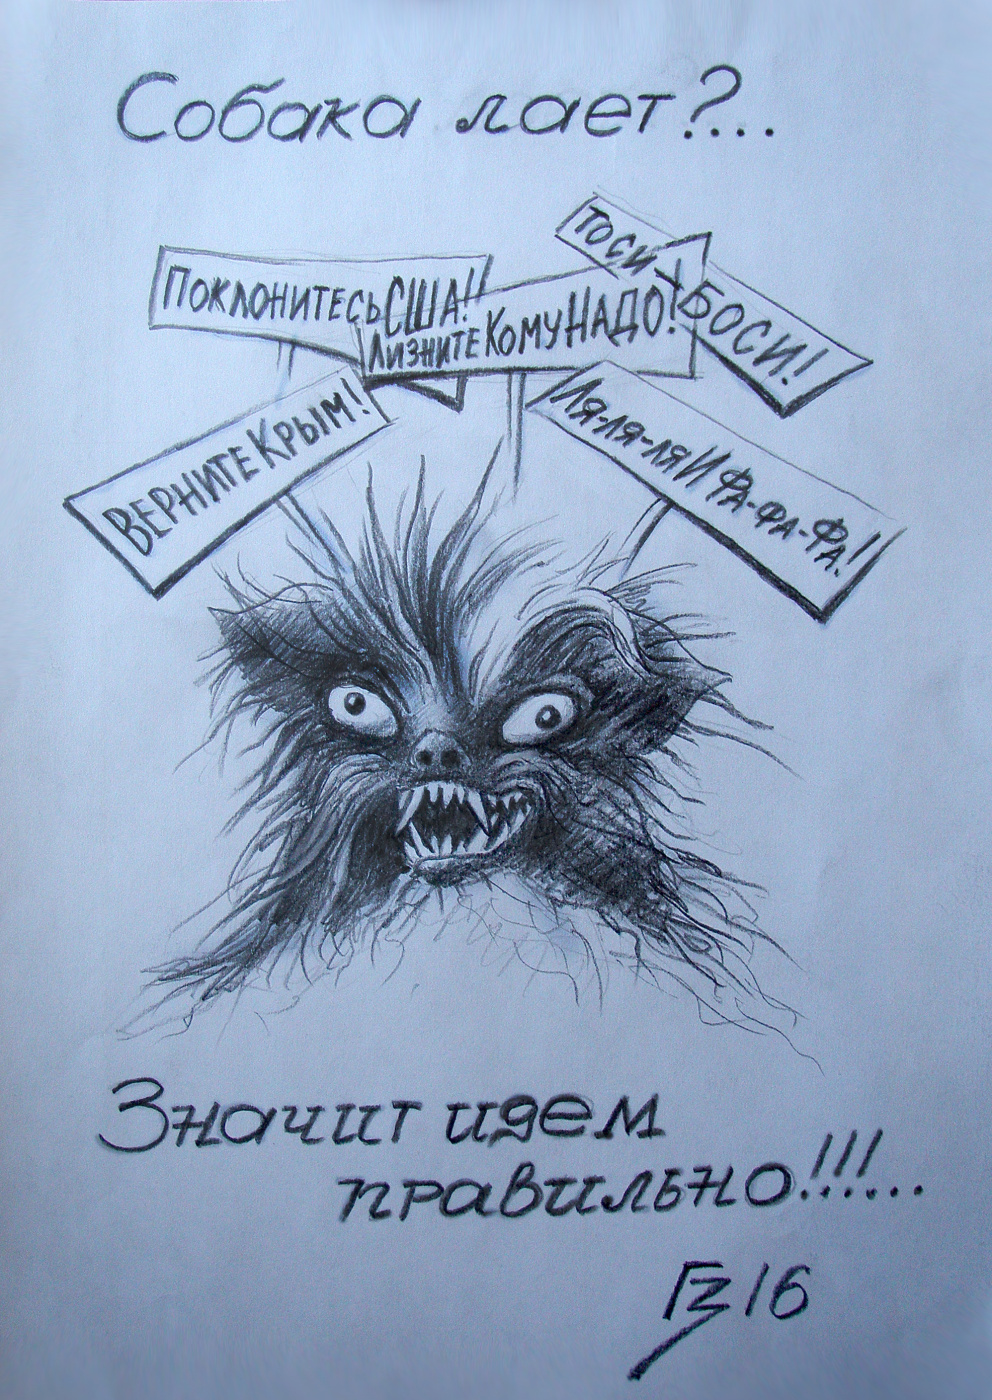 Собака лает?...
ТОСИ-БОСИ!
ПОКЛОНИТЕСЬ США!!
ЛИЗНИТЕ КОМУ НАДО!
ВЕРНИТЕ КРЫМ!
ЛЯ-ЛЯ-ЛЯ И ФА-ФА-ФА!!
Значит идем
правильно!!!...
ГЗ 16